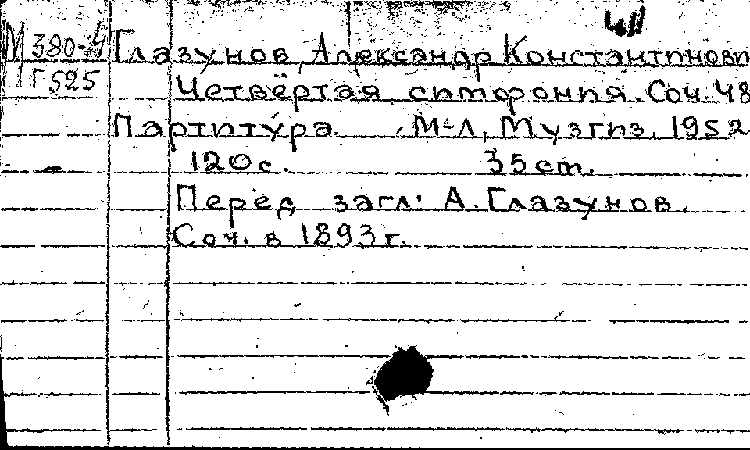 М 380-4 Глазунов, Александр Константинови
Г 525 Четвёртая симфония. Соч. 48
Партитура. М-Л, Музгиз, 1952
120 с. 35 cm.
Перед загл. А. Глазунов.
Соч. в 1893 г.